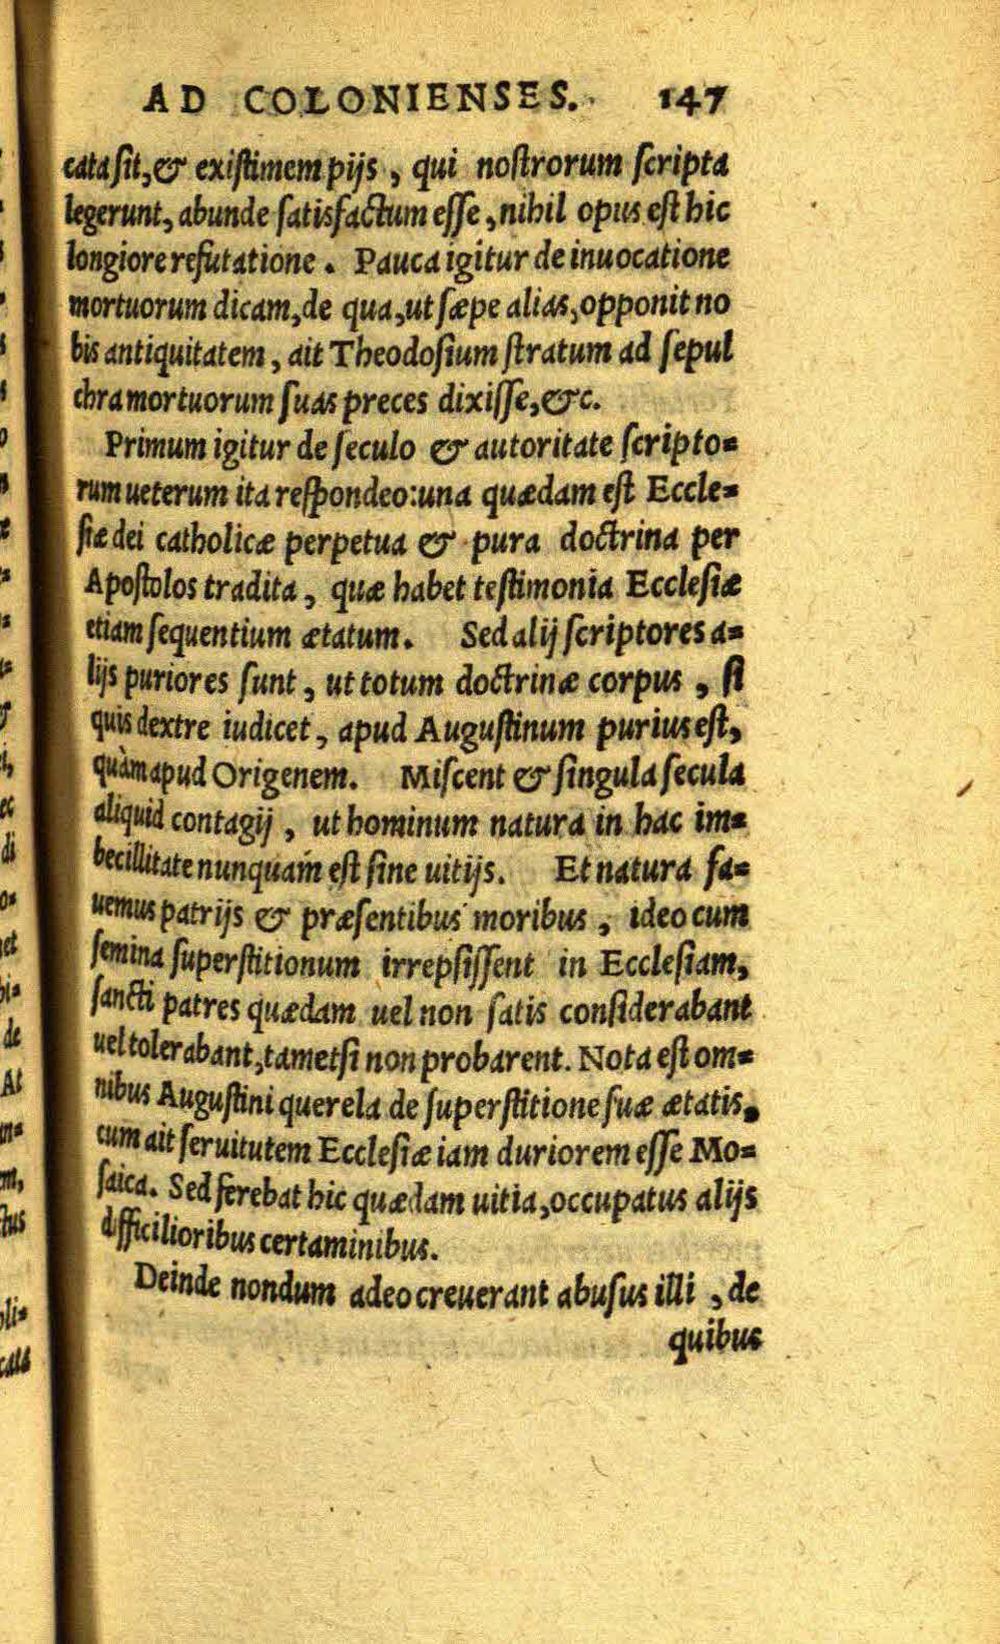 AD COLONIENSES. 147
cata sit, & existimem pijs, qui nostrorum scripta
legerunt, abunde satisfactum esse, nihil opus est hic
longiore refutatione. Pauca igitur de inuocatione
mortuorum dicam, de qua, ut sæpe alias, opponit no
bis antiquitatem, ait Theodosium stratum ad sepul
chra mortuorum suas preces dixisse, &c.
Primum igitur de seculo & autoritate scripto=
rum ueterum ita respondeo: una quædam est Eccle=
siæ dei catholicæ perpetua & pura doctrina per
Apostolos tradita, quæ habet testimonia Ecclesiæ
etiam sequentium ætatum. Sed alij scriptores a=
lijs puriores sunt, ut totum doctrinæ corpus, si
quis dextre iudicet, apud Augustinum purius est,
quàm apud Origenem. Miscent & singula secula
aliquid contagij, ut hominum natura in hac im=
becillitate nunquam est sine uitijs. Et natura fa=
uemus patrijs & præsentibus moribus, ideo cum
semina superstitionum irrepsissent in Ecclesiam,
sancti patres quædam uel non satis considerabant
uel tolerabant, tametsi non probarent. Nota est om=
nibus Augustini querela de superstitione suæ ætatis,
cum ait seruitutem Ecclesiæ iam duriorem esse Mo=
saica. Sed ferebat hic quædam uitia, occupatus alijs
difficilioribus certaminibus.
Deinde nondum adeo creuerant abusus illi, de
quibus